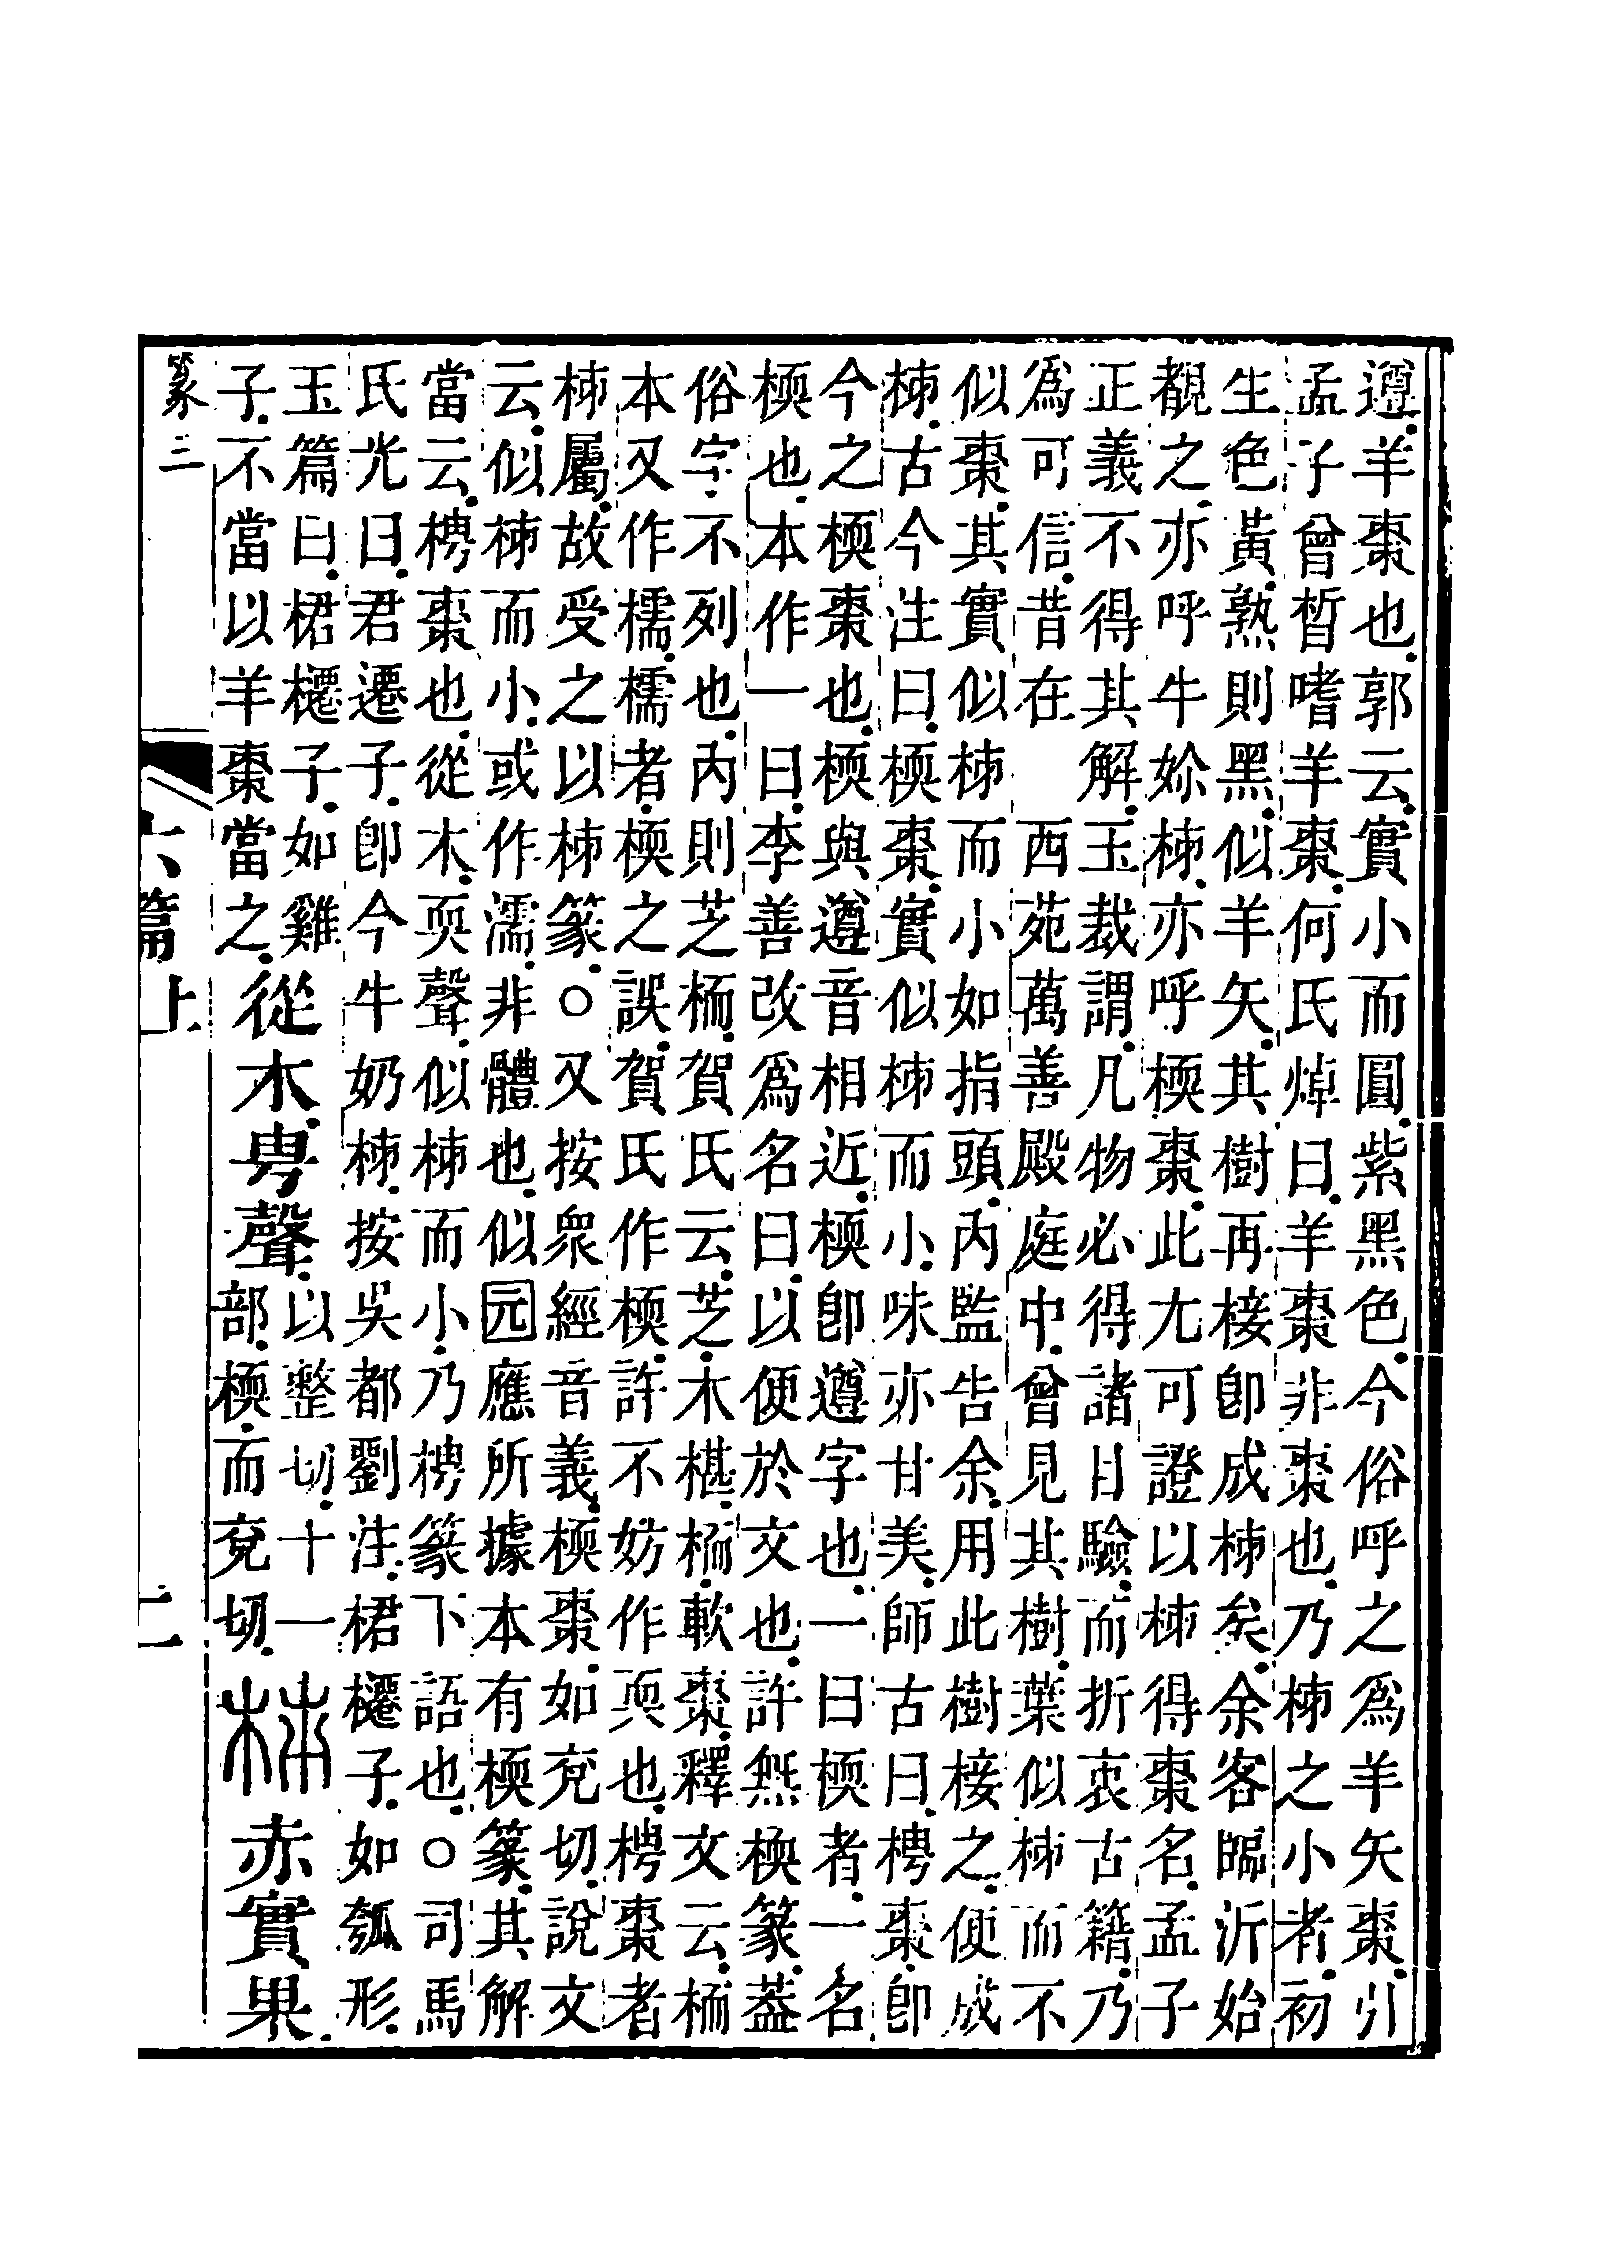 遵羊棗也郭云實小而圓紫黑色今俗呼之爲羊矢棗引
孟子曾晳嗜羊棗何氏焯曰羊棗非棗也乃柹之小者初
生色黃熟則黑似羊矢其樹再椄卽成柹矣余客臨沂始
覩之亦呼牛奶柹亦呼㮕棗此尤可證以柹得棗名孟子
正義不得其解玉裁謂凡物必得諸目驗而折衷古籍乃
爲可信昔在　西苑萬善殿庭中曾見其樹葉似柹而不
似棗其實似柹而小如指頭內監告余用此樹椄之便成
柹古今注曰㮕棗實似柹而小味亦甘美師古曰梬棗卽
今之㮕棗也㮕與遵音相近㮕卽遵字也一曰㮕者一名
㮕也本作一曰李善改爲名曰以便於文也許無㮕篆葢
俗字不列也內則芝栭賀氏云芝木椹栭軟棗釋文云栭
本又作檽檽者㮕之誤賀氏作㮕許不妨作耎也梬棗者
柹屬故受之以柹篆○又按衆經音義㮕棗如兖切說文
云似柹而小或作濡非體也似园應所據本有㮕篆其解
當云梬棗也從木耎聲似柹而小乃梬篆下語也○司馬
氏光曰君遷子卽今牛奶柹按吳都劉注桾櫏子如瓠形
玉篇曰桾櫏子如雞
子不當以羊棗當之
從木甹聲
以整切十一
部㮕而兖切
柹赤實果
篆三
六篇上
二